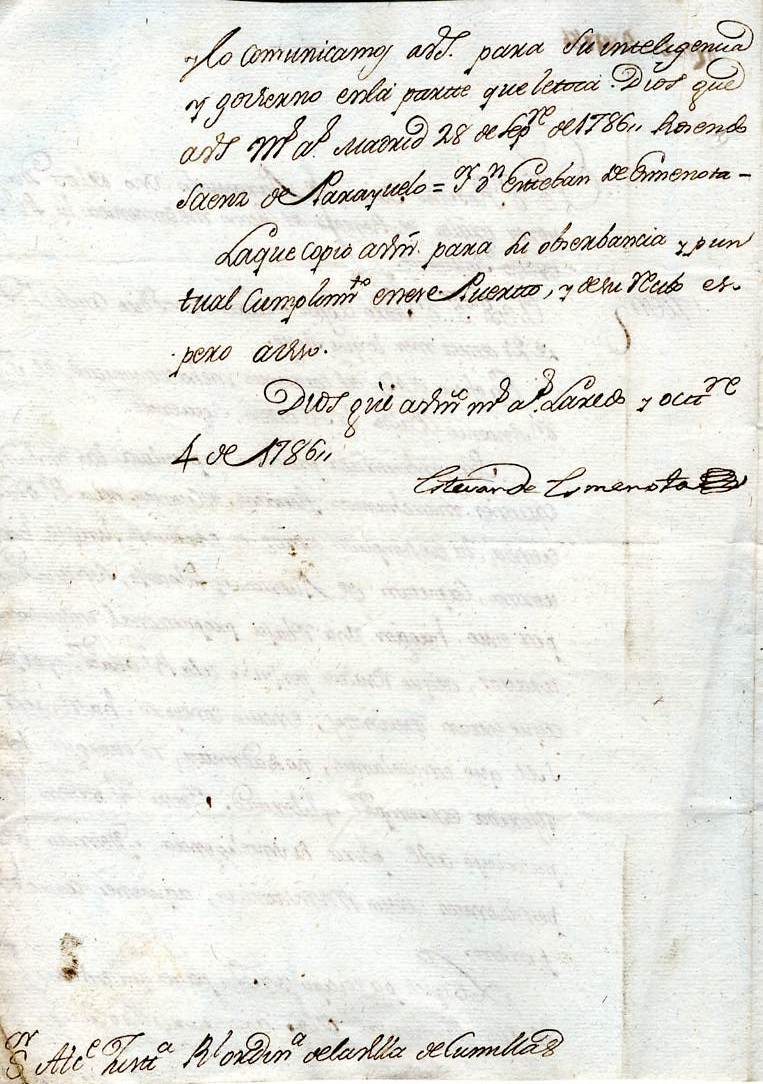 y lo comunicamos a Vs. para su inteligencia
y govierno en la partte que le toca. Dios que
a Vs Ms. as. Madrid 28 de Sepre de 1786,, Rosendo
Saenz de Parayuelo = Sr Dn Esteban de Esmenota –
La que copio a Vm. para su obserbancia y pun
tual Cumplimto en ese Puertto, y de su Rcibo es-
pero aviso.
Dios que a Vm ms. as. Laredo y octtre
4 de 1786,,
Estevan de Esmenota
Sr Alce Justa Rl ordina de la villa de Comillas